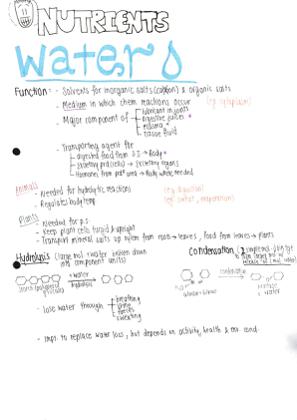 NUTRIENTS
Water
Function: - Solvents for inorganic salts (carbon) & organic salts
- Medium in which chem reactions occur (eg. cytoplasm)
- Major component of - lubricant in joints
- digestive juices
- tissue fluid
- Transporting agent for
- digested food from S.I → Body
- Excretory prod (cells) → Excretory organs
- Hormones from prod area → Body where needed
Animals
- Needed for hydrolytic reactions
- Regulates body temp (eg. sweat, evaporation)
Plants
- Needed for p.s
- Keep plant cells turgid & upright
- Transport mineral salts up xylem from roots → leaves, food from leaves → plants
Hydrolysis (large mol + water broken down
into component units)
Condensation
+ water
hydrolysis
condensation
glucose + glucose
maltose
+ water
- lose water through - breathing
- urine
- faeces
- sweating
- impt. to replace water loss, but depends on activity, health & env. cond.